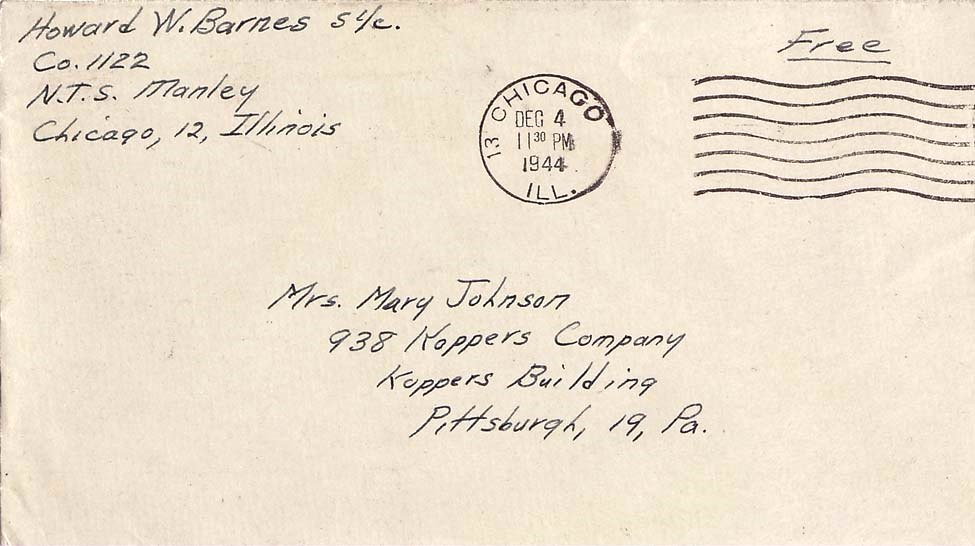 Howard W. Barnes S 1/c.
Co. 1122
N.T.S. Manley
Chicago, 12, Illinois
Free
CHICAGO 13
DEC 4
11 30 PM
1944
ILL.
Mrs. Mary Johnson
938 Koppers Company
Koppers Building
Pittsburgh, 19, Pa.